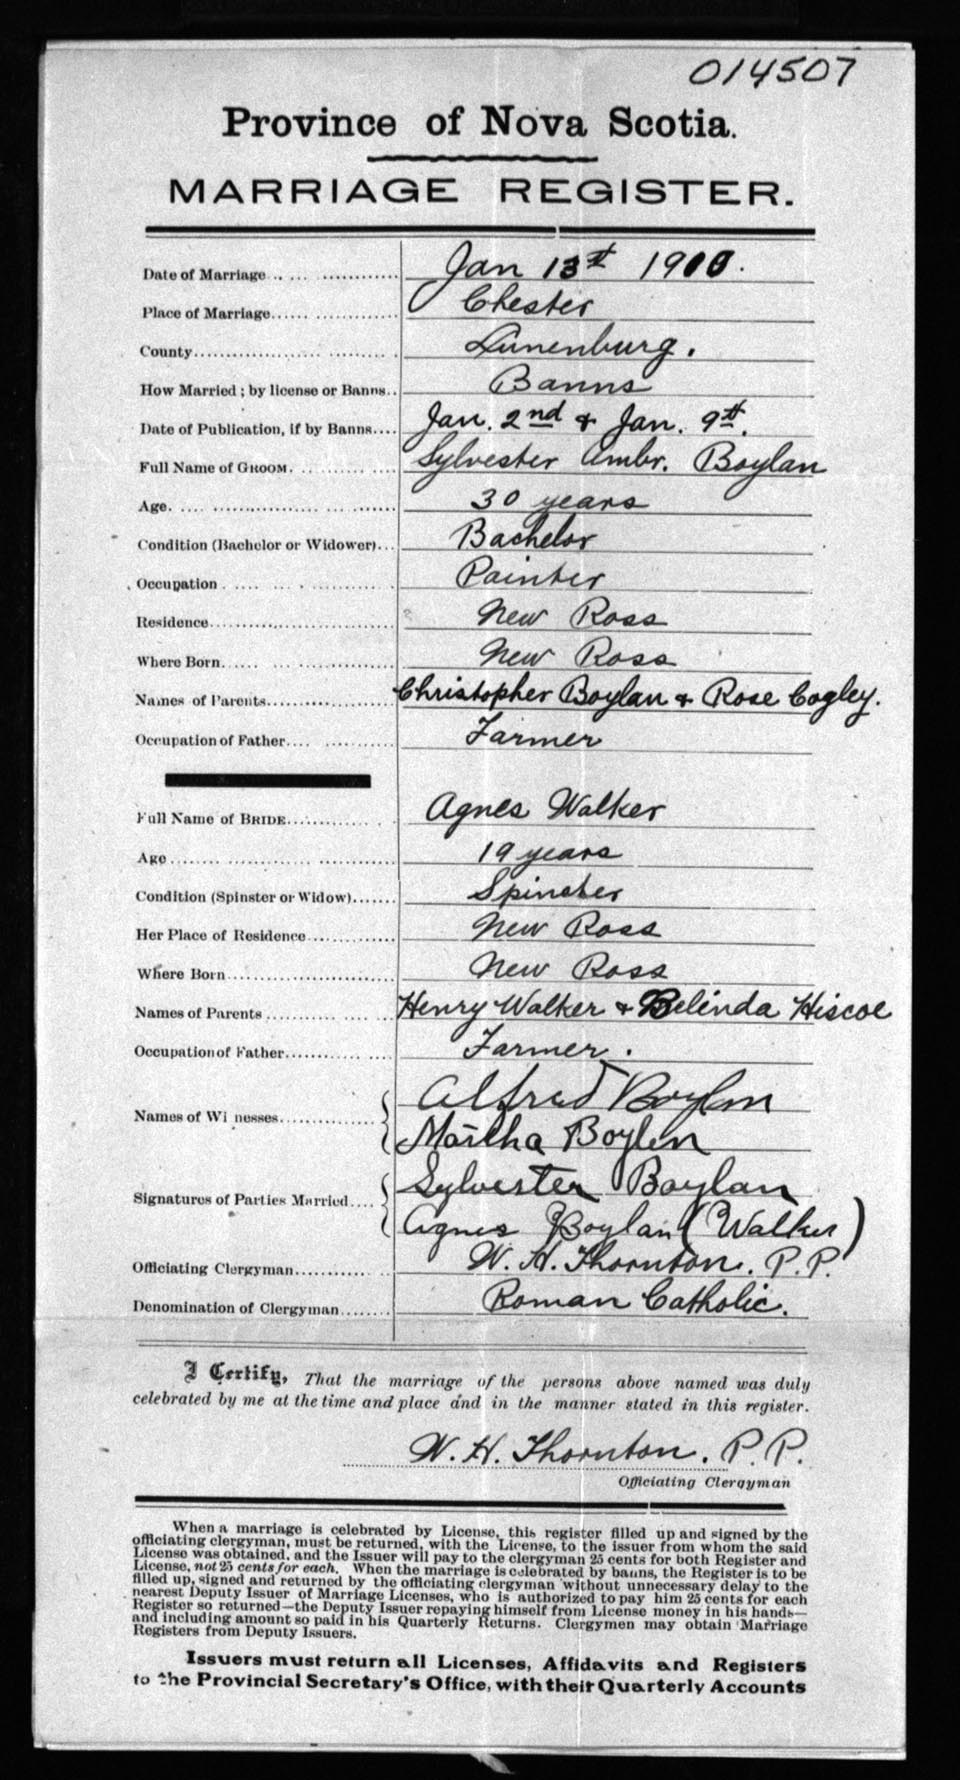 014507
Province of Nova Scotia.
MARRIAGE REGISTER.
Date of Marriage Jan 13th 1910.
Place of Marriage Chester
County Lunenburg.
How Married; by license or Banns Banns
Date of Publication, if by Banns Jan. 2nd & Jan. 9th.
Full Name of GROOM. Sylvester Ambr. Boylan
Age. 30 years
Condition (Bachelor or Widower) Bachelor
Occupation Painter
Residence New Ross
Where Born New Ross
Names of Parents Christopher Boylan & Rose Cogley.
Occupation of Father Farmer
Full Name of BRIDE Agnes Walker
Age 19 years
Condition (Spinster or Widow) Spinster
Her Place of Residence New Ross
Where Born New Ross
Names of Parents Henry Walker & Belinda Hiscoe
Occupation of Father Farmer.
Names of Wi nesses Alfred Boylan
Martha Boylen
Signatures of Parties Married Sylvester Boylan
Agnes Boylan (Walker)
Officiating Clergyman W. H. Thornton. P.P.
Denomination of Clergyman Roman Catholic.
I Certify, That the marriage of the persons above named was duly
celebrated by me at the time and place and in the manner stated in this register.
W. H. Thornton. P.P.
Officiating Clergyman
When a marriage is celebrated by License, this register filled up and signed by the
officiating clergyman, must be returned, with the License, to the issuer from whom the said
License was obtained, and the Issuer will pay to the clergyman 25 cents for both Register and
License, not 25 cents for each. When the marriage is celebrated by banns, the Register is to be
filled up, signed and returned by the officiating clergyman without unnecessary delay to the
nearest Deputy Issuer of Marriage Licenses, who is authorized to pay him 25 cents for each
Register so returned—the Deputy Issuer repaying himself from License money in his hands—
and including amount so paid in his Quarterly Returns. Clergymen may obtain Marriage
Registers from Deputy Issuers.
Issuers must return all Licenses, Affidavits and Registers
to the Provincial Secretary's Office, with their Quarterly Accounts